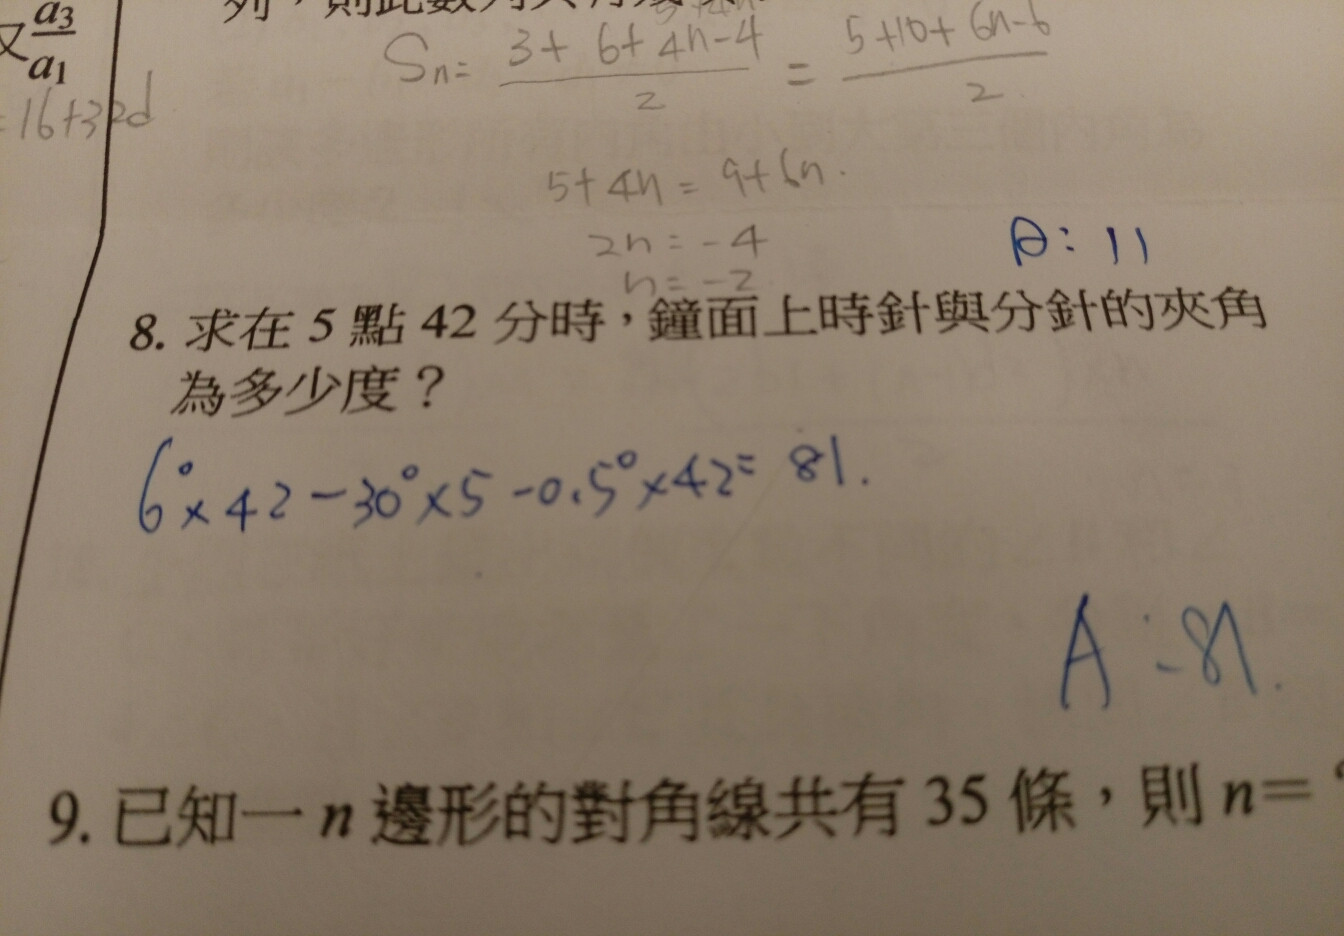 又a₃/a₁
=16+32d
Sn= 3+6+4n-4/2 = 5+10+6n-6/2
5+4n=9+6n.
2n=-4
n=-2
A: 11
8. 求在 5 點 42 分時，鐘面上時針與分針的夾角
為多少度？
6°×42-30°×5-0.5°×42= 81.
A:81.
9. 已知一 n 邊形的對角線共有 35 條，則 n=